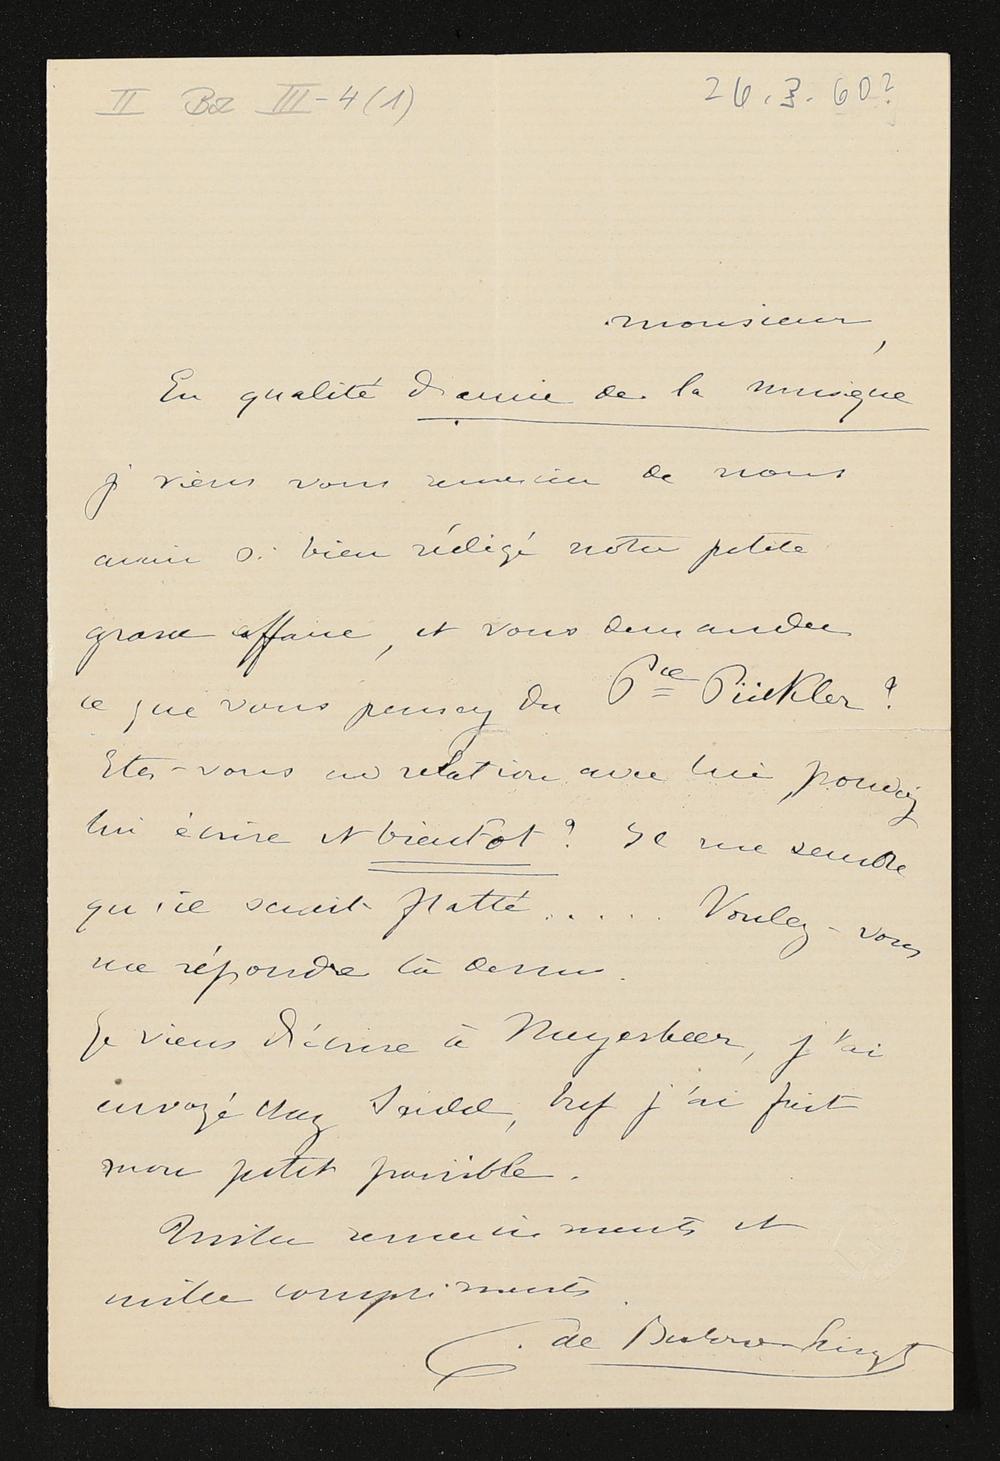 II Bz III-4(1)
26.3.60?
monsieur,
En qualité d'amie de la musique
je viens vous remercier de nous
avoir si bien rédigé notre petite
grande affaire, et vous demander
ce que vous pensez du Pce Pückler?
Etes-vous en relation avec lui, pouvez
lui écrire et bientôt? Il me semble
qu'il serait flatté ..... Voulez-vous
me répondre là dessus.
Je viens d'écrire à Meyerbeer, j'ai
envoyé chez Seidel, bref j'ai fait
mon petit possible.
Mille remerciements et
mille compliments.
C. de Bulow-Liszt